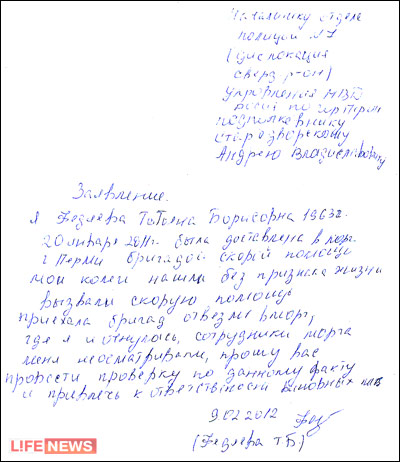 Начальнику отдела
полиции №1
(дислокация
сверд. р-он)
Управления МВД
по
подполковнику
Стародворскому
Андрею Владиславовичу
Заявление.
Я Федяева Татьяна Борисовна 1963г.
20 января 2011г. была доставлена в морг
г Перми бригадой скорой помощи
мои колеги нашли без признака жизни
вызвали скорую помощь
приехала бригад отвезли в морг,
где я и очнулось, сотрудники морга
меня неосматривали, прошу вас
провести проверку по данному факту
и привлечь к ответствености виновных лиц
9 02 2012
(Федяева Т Б)
LIFENEWS